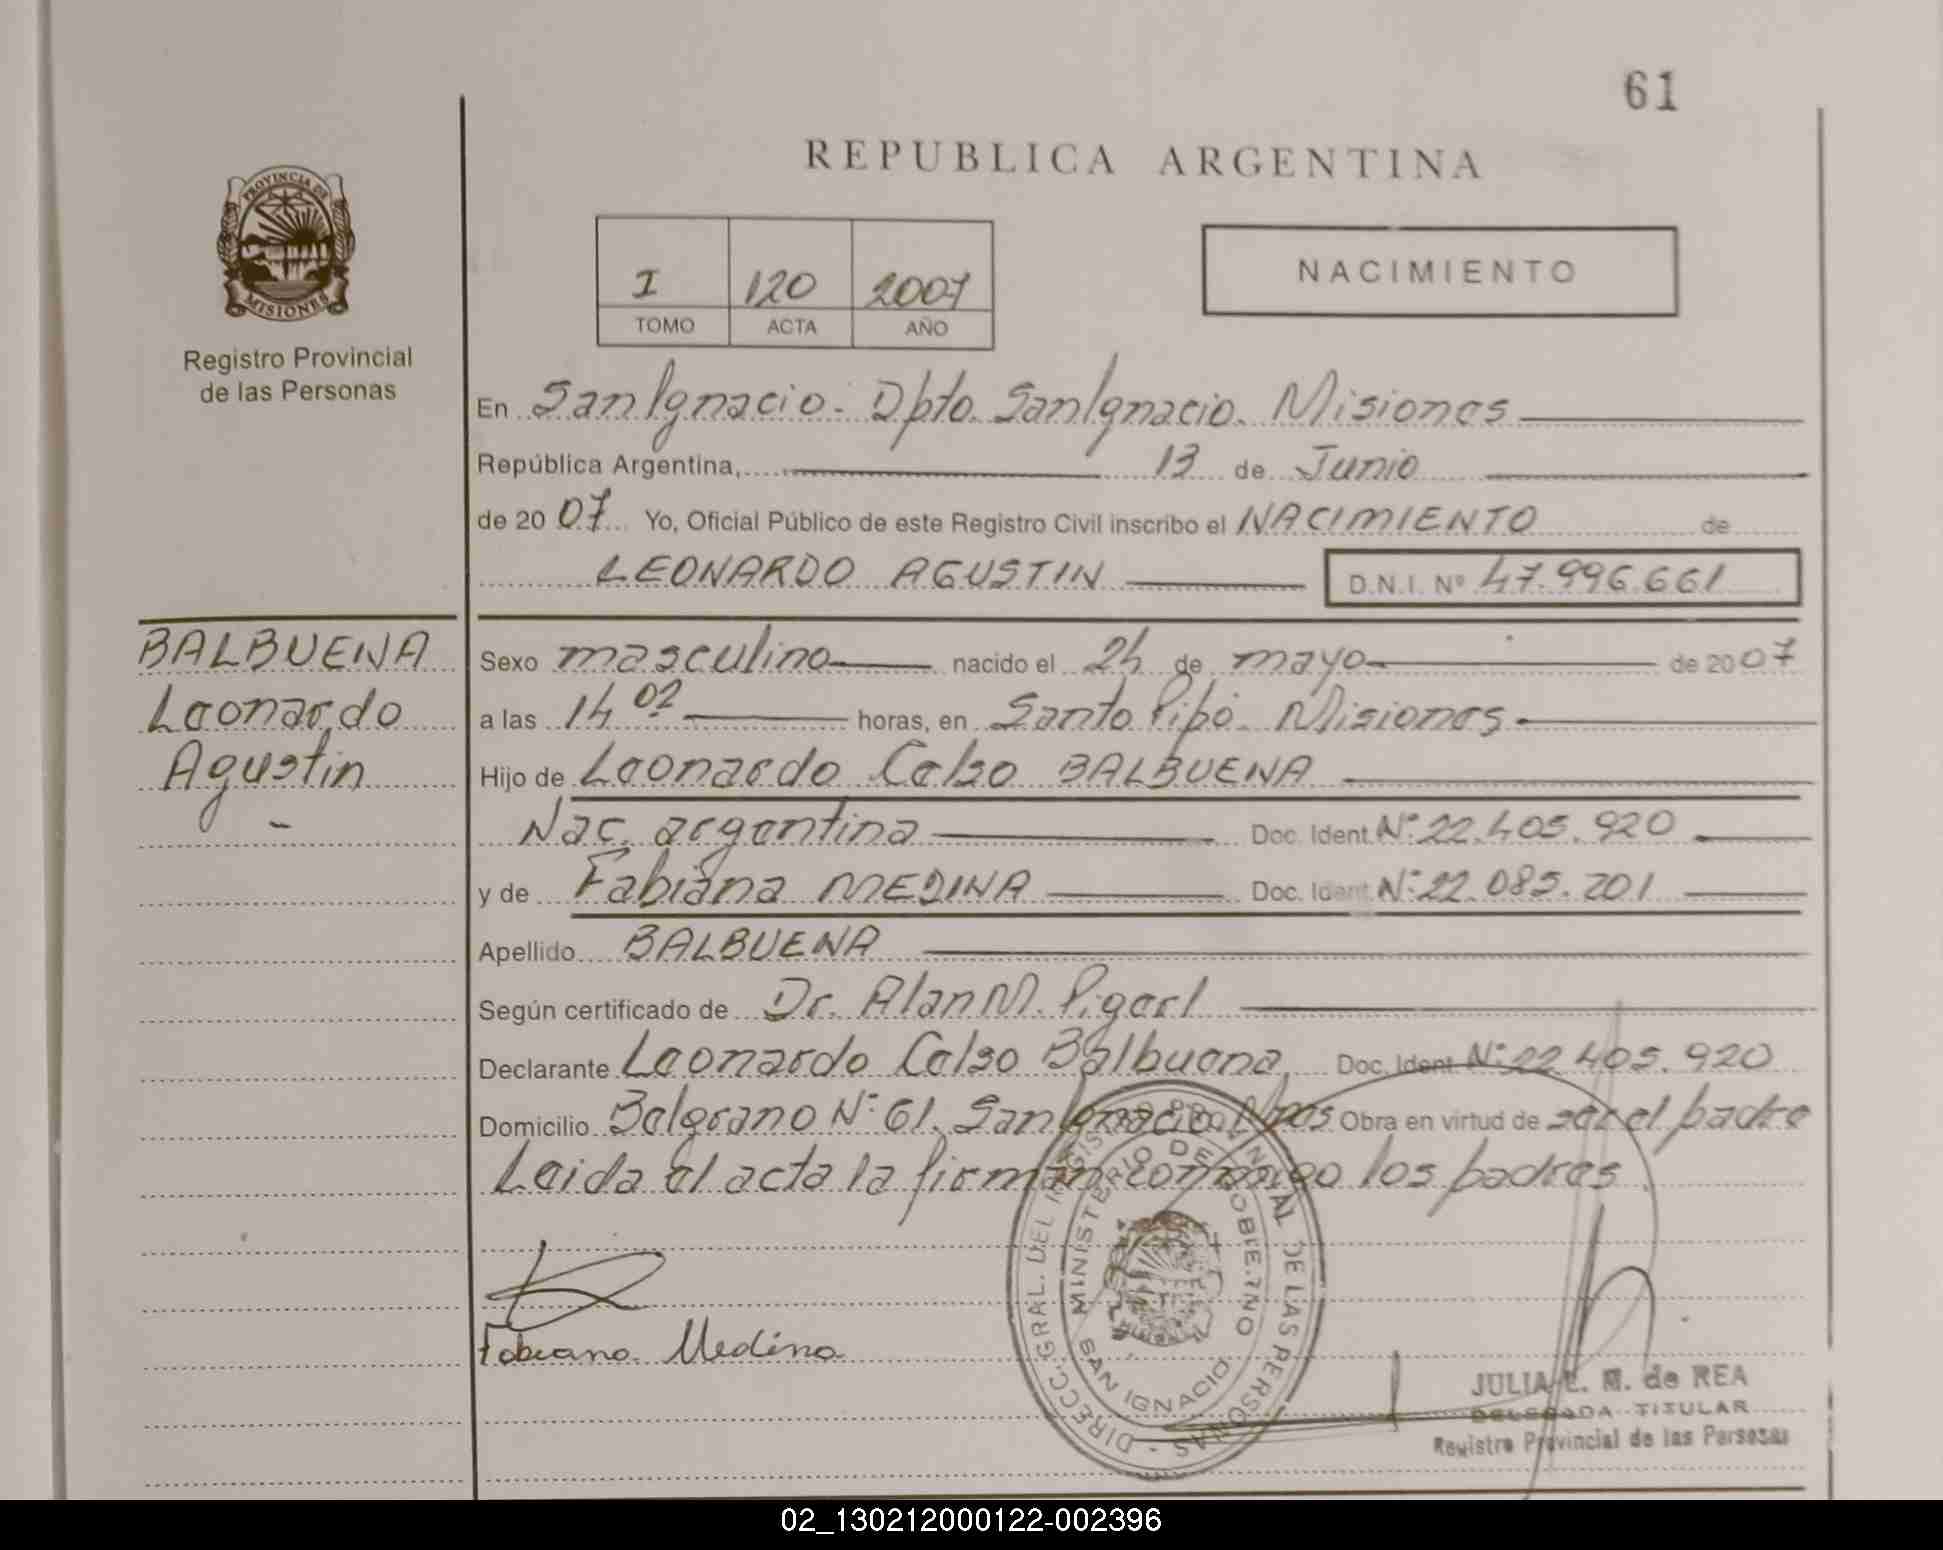 61
REPUBLICA ARGENTINA
PROVINCIA DE
MISIONES
Registro Provincial
de las Personas
I 120 2007
TOMO ACTA AÑO
NACIMIENTO
En San Ignacio. Dpto. San Ignacio. Misiones
República Argentina, 13 de Junio
de 2007 Yo, Oficial Público de este Registro Civil inscribo el NACIMIENTO de
LEONARDO AGUSTIN D.N.I. Nº 47.996.661
BALBUENA
Leonardo
Agustin
Sexo masculino nacido el 24 de mayo de 2007
a las 14 02 horas, en Santo Pipó. Misiones
Hijo de Leonardo Celso BALBUENA
Nac. argentina Doc. Ident. Nº 22.405.920
y de Fabiana MEDINA Doc. Ident. Nº 22.085.201
Apellido BALBUENA
Según certificado de Dr. Alan M.
Declarante Leonardo Celso Balbuena. Doc. Ident. Nº 22.405.920
Domicilio Belgrano Nº 61. San Ignacio Mnes Obra en virtud de ser el padre
Leida el acta la firman conmigo los padres.
Fabiana Medina
DIRECC. GRAL. DEL REGISTRO PROVINCIAL DE LAS PERSONAS
MINISTERIO DE GOBIERNO
SAN IGNACIO
JULIA E. M. de REA
DELEGADA TITULAR
Registro Provincial de las Personas
02_130212000122-002396